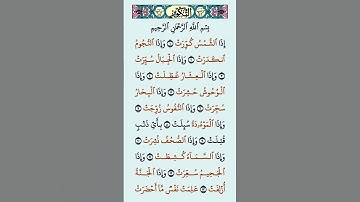 التكوير
بِسْمِ ٱللَّهِ ٱلرَّحْمَٰنِ ٱلرَّحِيمِ
إِذَا ٱلشَّمْسُ كُوِّرَتْ ١ وَإِذَا ٱلنُّجُومُ
ٱنكَدَرَتْ ٢ وَإِذَا ٱلْجِبَالُ سُيِّرَتْ
٣ وَإِذَا ٱلْعِشَارُ عُطِّلَتْ ٤ وَإِذَا
ٱلْوُحُوشُ حُشِرَتْ ٥ وَإِذَا ٱلْبِحَارُ
سُجِّرَتْ ٦ وَإِذَا ٱلنُّفُوسُ زُوِّجَتْ ٧
وَإِذَا ٱلْمَوْءُۥدَةُ سُئِلَتْ ٨ بِأَىِّ ذَنۢبٍ
قُتِلَتْ ٩ وَإِذَا ٱلصُّحُفُ نُشِرَتْ ١٠
وَإِذَا ٱلسَّمَآءُ كُشِطَتْ ١١ وَإِذَا
ٱلْجَحِيمُ سُعِّرَتْ ١٢ وَإِذَا ٱلْجَنَّةُ
أُزْلِفَتْ ١٣ عَلِمَتْ نَفْسٌ مَّآ أَحْضَرَتْ